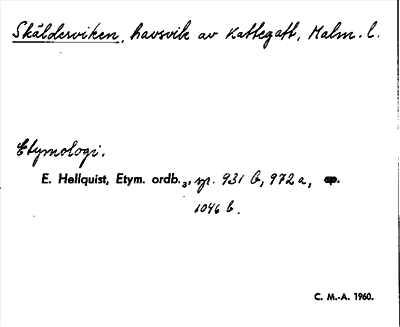 Skälderviken, havsvik av Kattegatt, Malm. l.
Etymologi.
E. Hellquist, Etym. ordb.₃, sp. 931 b, 972 a,
1046 b.
C. M.-A. 1960.